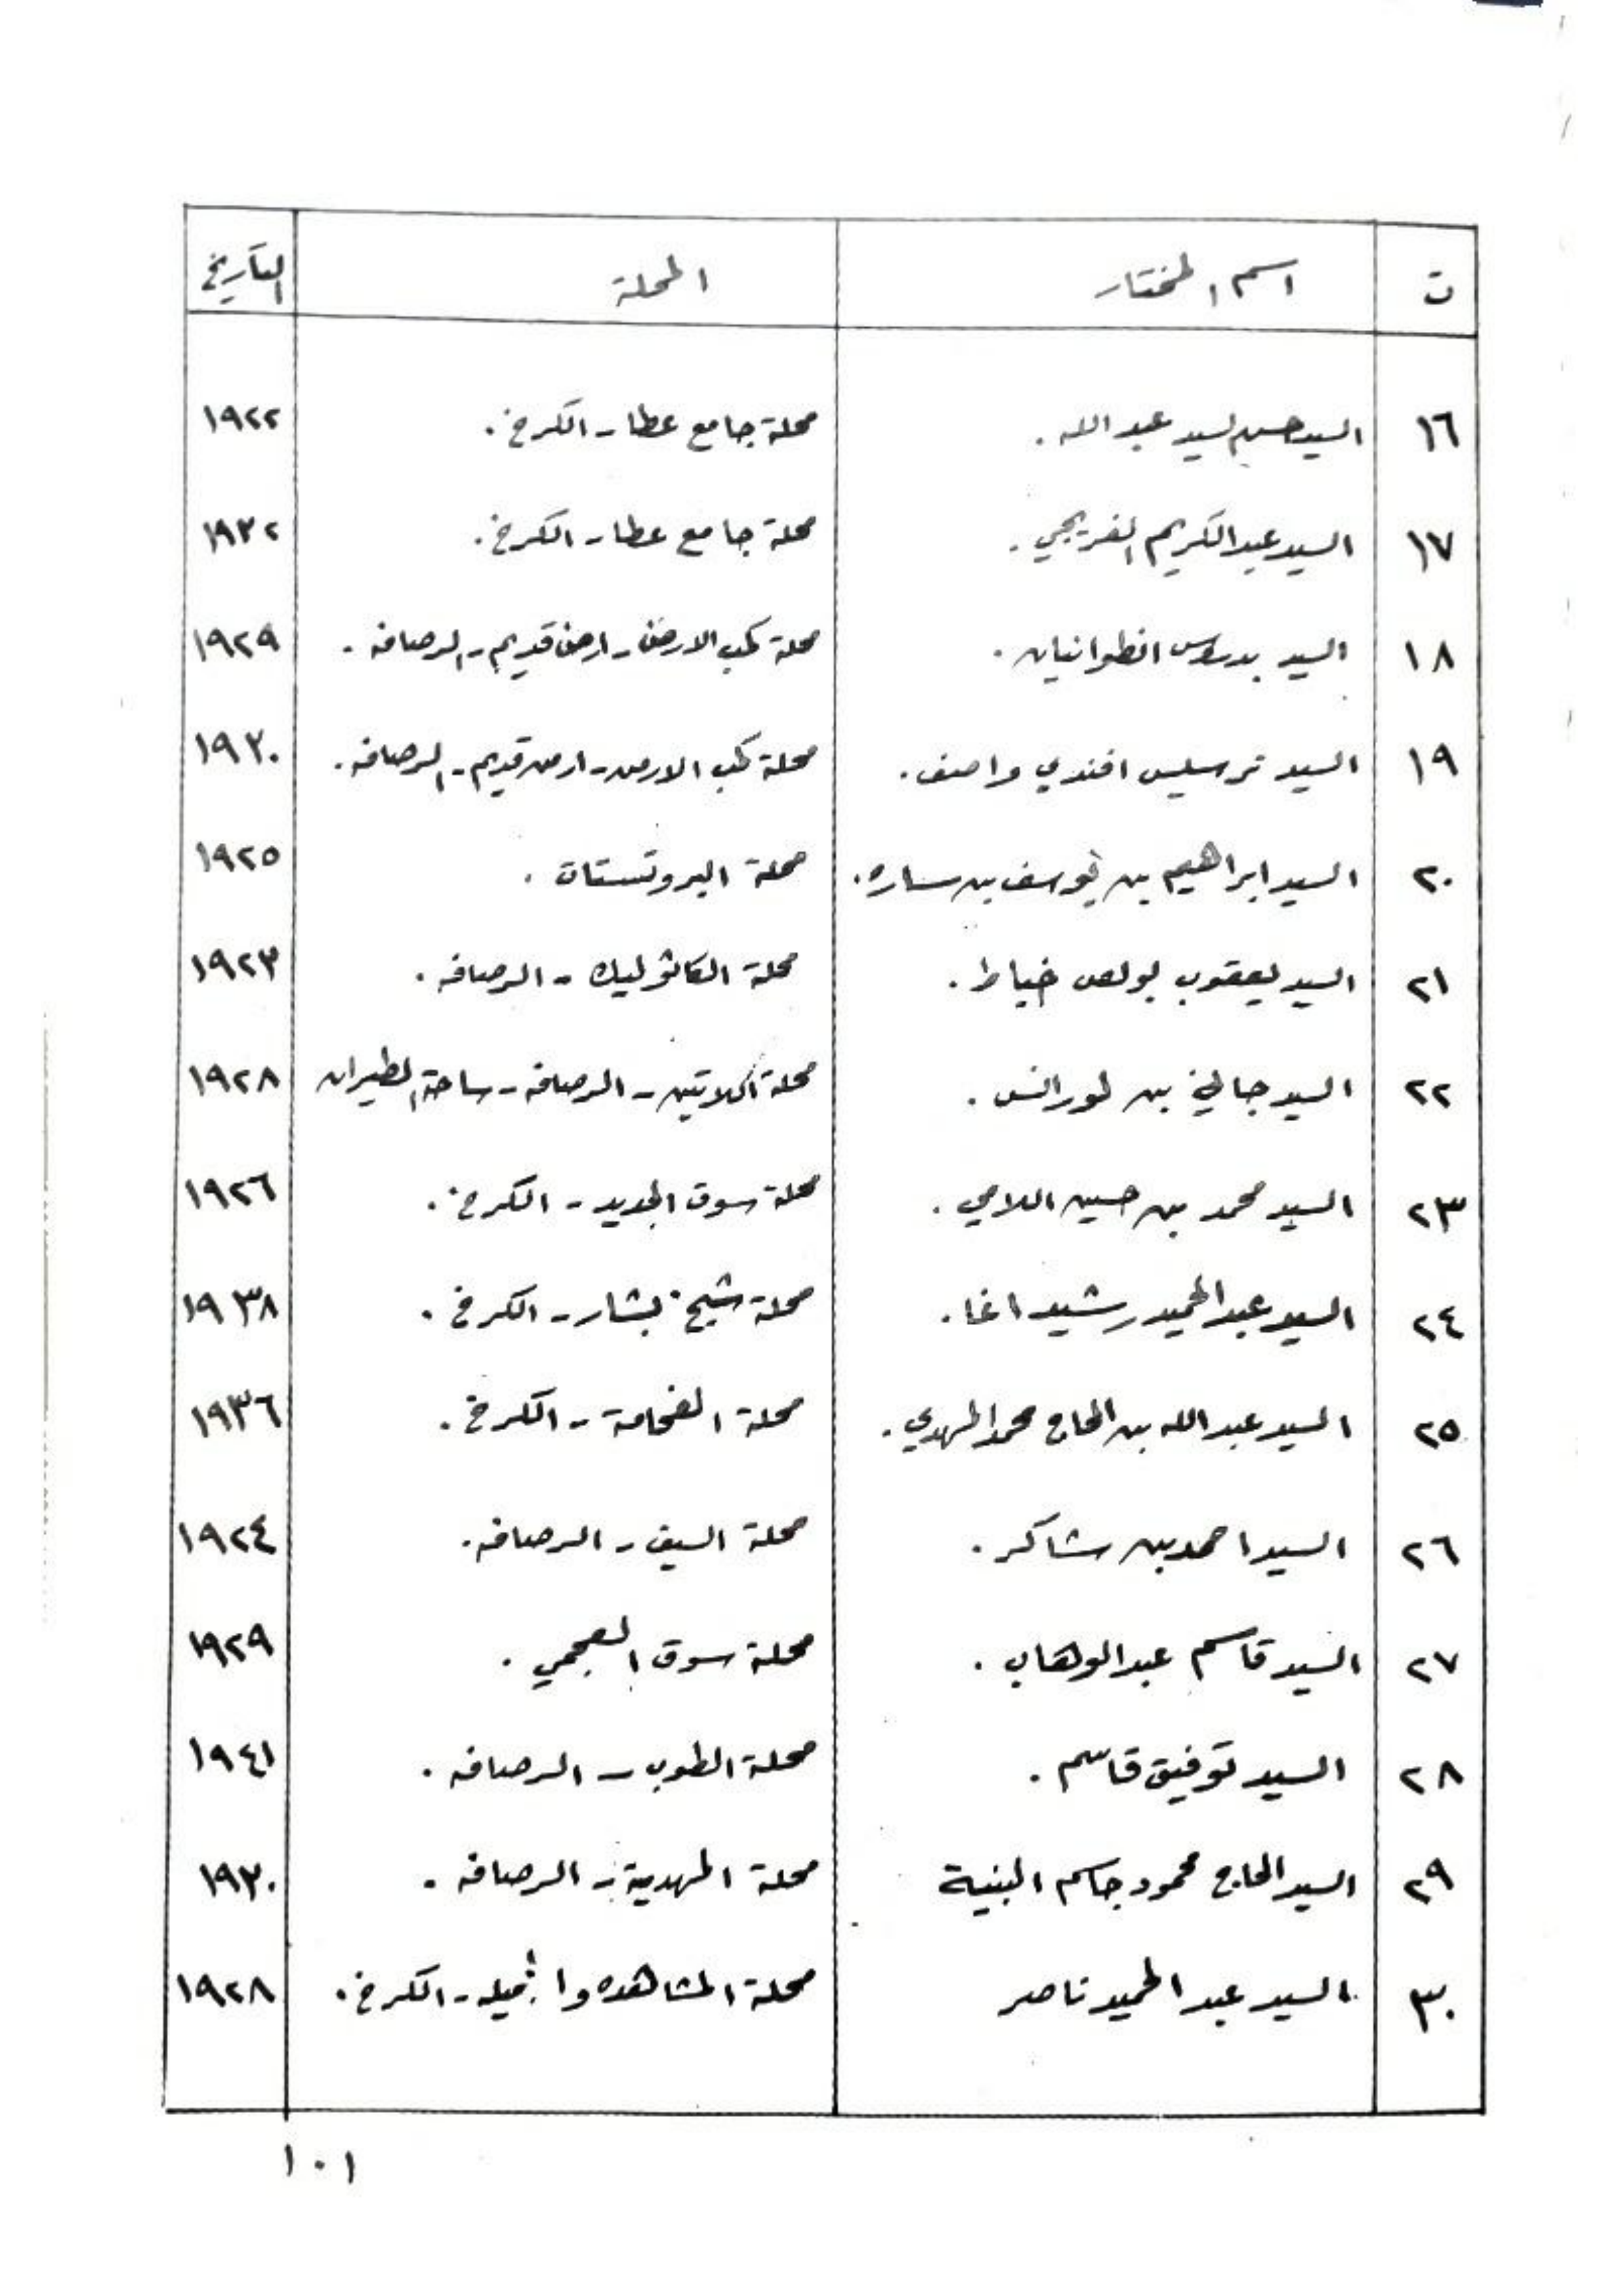 ت اسم المختار المحلة التاريخ
١٦ السيد حسين السيد عبد الله. محلة جامع عطا - الكرخ. ١٩٢٢
١٧ السيد عبد الكريم الفريجي. محلة جامع عطا - الكرخ. ١٩٣٢
١٨ السيد بدروس انطوانيان. محلة كمب الارمن - ارمن قديم - الرصافه. ١٩٢٩
١٩ السيد نرسيس افندي واصف. محلة كمب الارمن - ارمن قديم - الرصافه. ١٩٣٠
٢٠ السيد ابراهيم بن يوسف بن ساره. محلة البروتستات. ١٩٢٥
٢١ السيد يعقوب بولص خياط. محلة الكاثوليك - الرصافه. ١٩٢٣
٢٢ السيد جاني بن لورانس. محلة اللاتين - الرصافه - ساحة الطيران ١٩٢٨
٢٣ السيد محمد بن حسين اللامي. محلة سوق الجديد - الكرخ. ١٩٢٦
٢٤ السيد عبد الحميد رشيد اغا. محلة شيخ بشار - الكرخ. ١٩٣٨
٢٥ السيد عبد الله بن الحاج محمد المهدي. محلة الفحامة - الكرخ. ١٩٣٦
٢٦ السيد احمد بن شاكر. محلة السيف - الرصافه. ١٩٢٤
٢٧ السيد قاسم عبد الوهاب. محلة سوق العجمي. ١٩٢٩
٢٨ السيد توفيق قاسم. محلة الطوب - الرصافه. ١٩٤١
٢٩ السيد الحاج محمود جاسم البنية محلة المهدية - الرصافه. ١٩٣٠
٣٠ السيد عبد الحميد ناصر محلة المشاهده - الكرخ. ١٩٢٨
١٠١